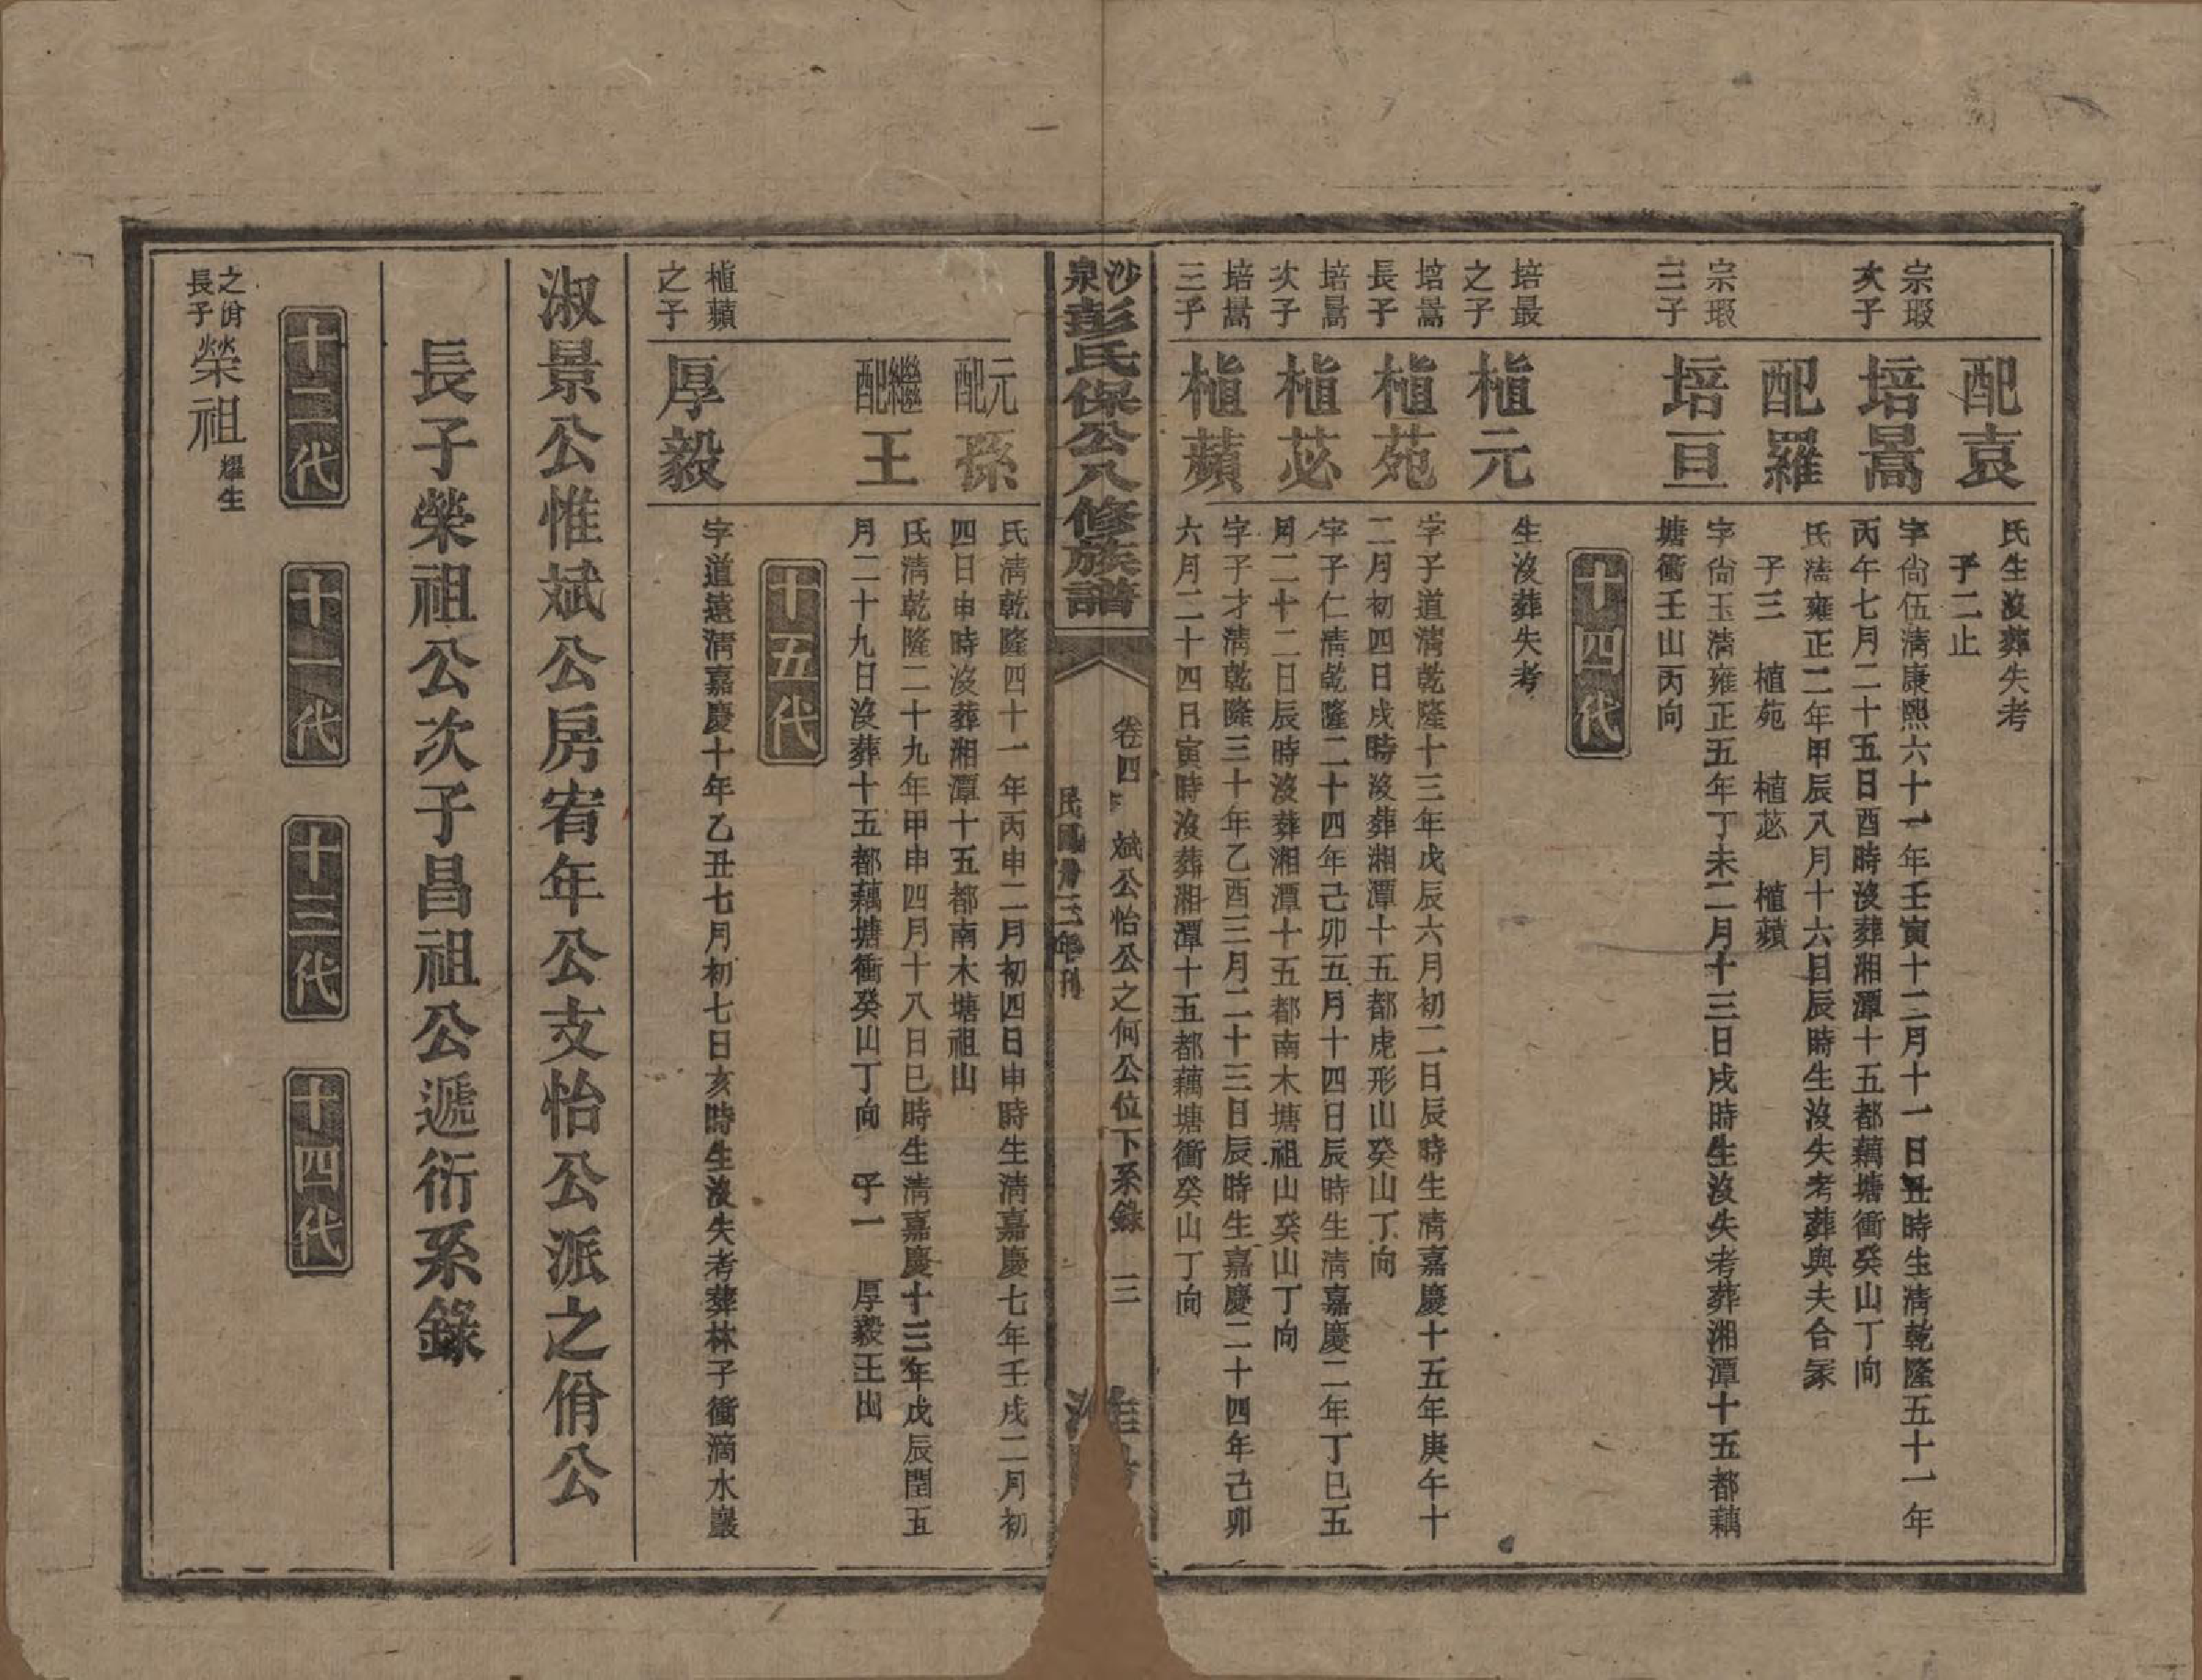 配袁
氏生沒葬失考
子二止
宗瑕次子
培暠
字尙伍淸康熙六十一年壬寅十二月十一日丑時生淸乾隆五十一年
丙午七月二十五日酉時沒葬湘潭十五都藕塘衝癸山丁向
配羅
氏淸雍正二年甲辰八月十六日辰時生沒失考葬與夫合冢
子三 植苑 植苾 植蘋
宗瑕三子
培亘
字尙玉淸雍正五年丁未二月十三日戌時生沒失考葬湘潭十五都藕
塘衝壬山丙向
十四代
培最之子
植元
生沒葬失考
培暠長子
植苑
字子道淸乾隆十三年戊辰六月初二日辰時生淸嘉慶十五年庚午十
二月初四日戌時沒葬湘潭十五都虎形山癸山丁向
培暠次子
植苾
字子仁淸乾隆二十四年己卯五月十四日辰時生淸嘉慶二年丁巳五
月二十二日辰時沒葬湘潭十五都南木塘祖山癸山丁向
培暠三子
植蘋
字子才淸乾隆三十年乙酉三月二十三日辰時生嘉慶二十四年己卯
六月二十四日寅時沒葬湘潭十五都藕塘衝癸山丁向
沙泉彭氏保公八修族譜
卷四 斌公怡公之何公位下系錄 三
民國卅三年刊
元配孫
氏淸乾隆四十一年丙申二月初四日申時生淸嘉慶七年壬戌二月初
四日申時沒葬湘潭十五都南木塘祖山
繼配王
氏淸乾隆二十九年甲申四月十八日巳時生淸嘉慶十三年戊辰閏五
月二十九日沒葬十五都藕塘衝癸山丁向 子一 厚毅王出
十五代
植蘋之子
厚毅
字道遠淸嘉慶十年乙丑七月初七日亥時生沒失考葬林子衝滴水巖
淑景公惟斌公房宥年公支怡公派之佾公
長子榮祖公次子昌祖公遞衍系錄
十二代 十一代 十三代 十四代
之佾長子榮祖耀生